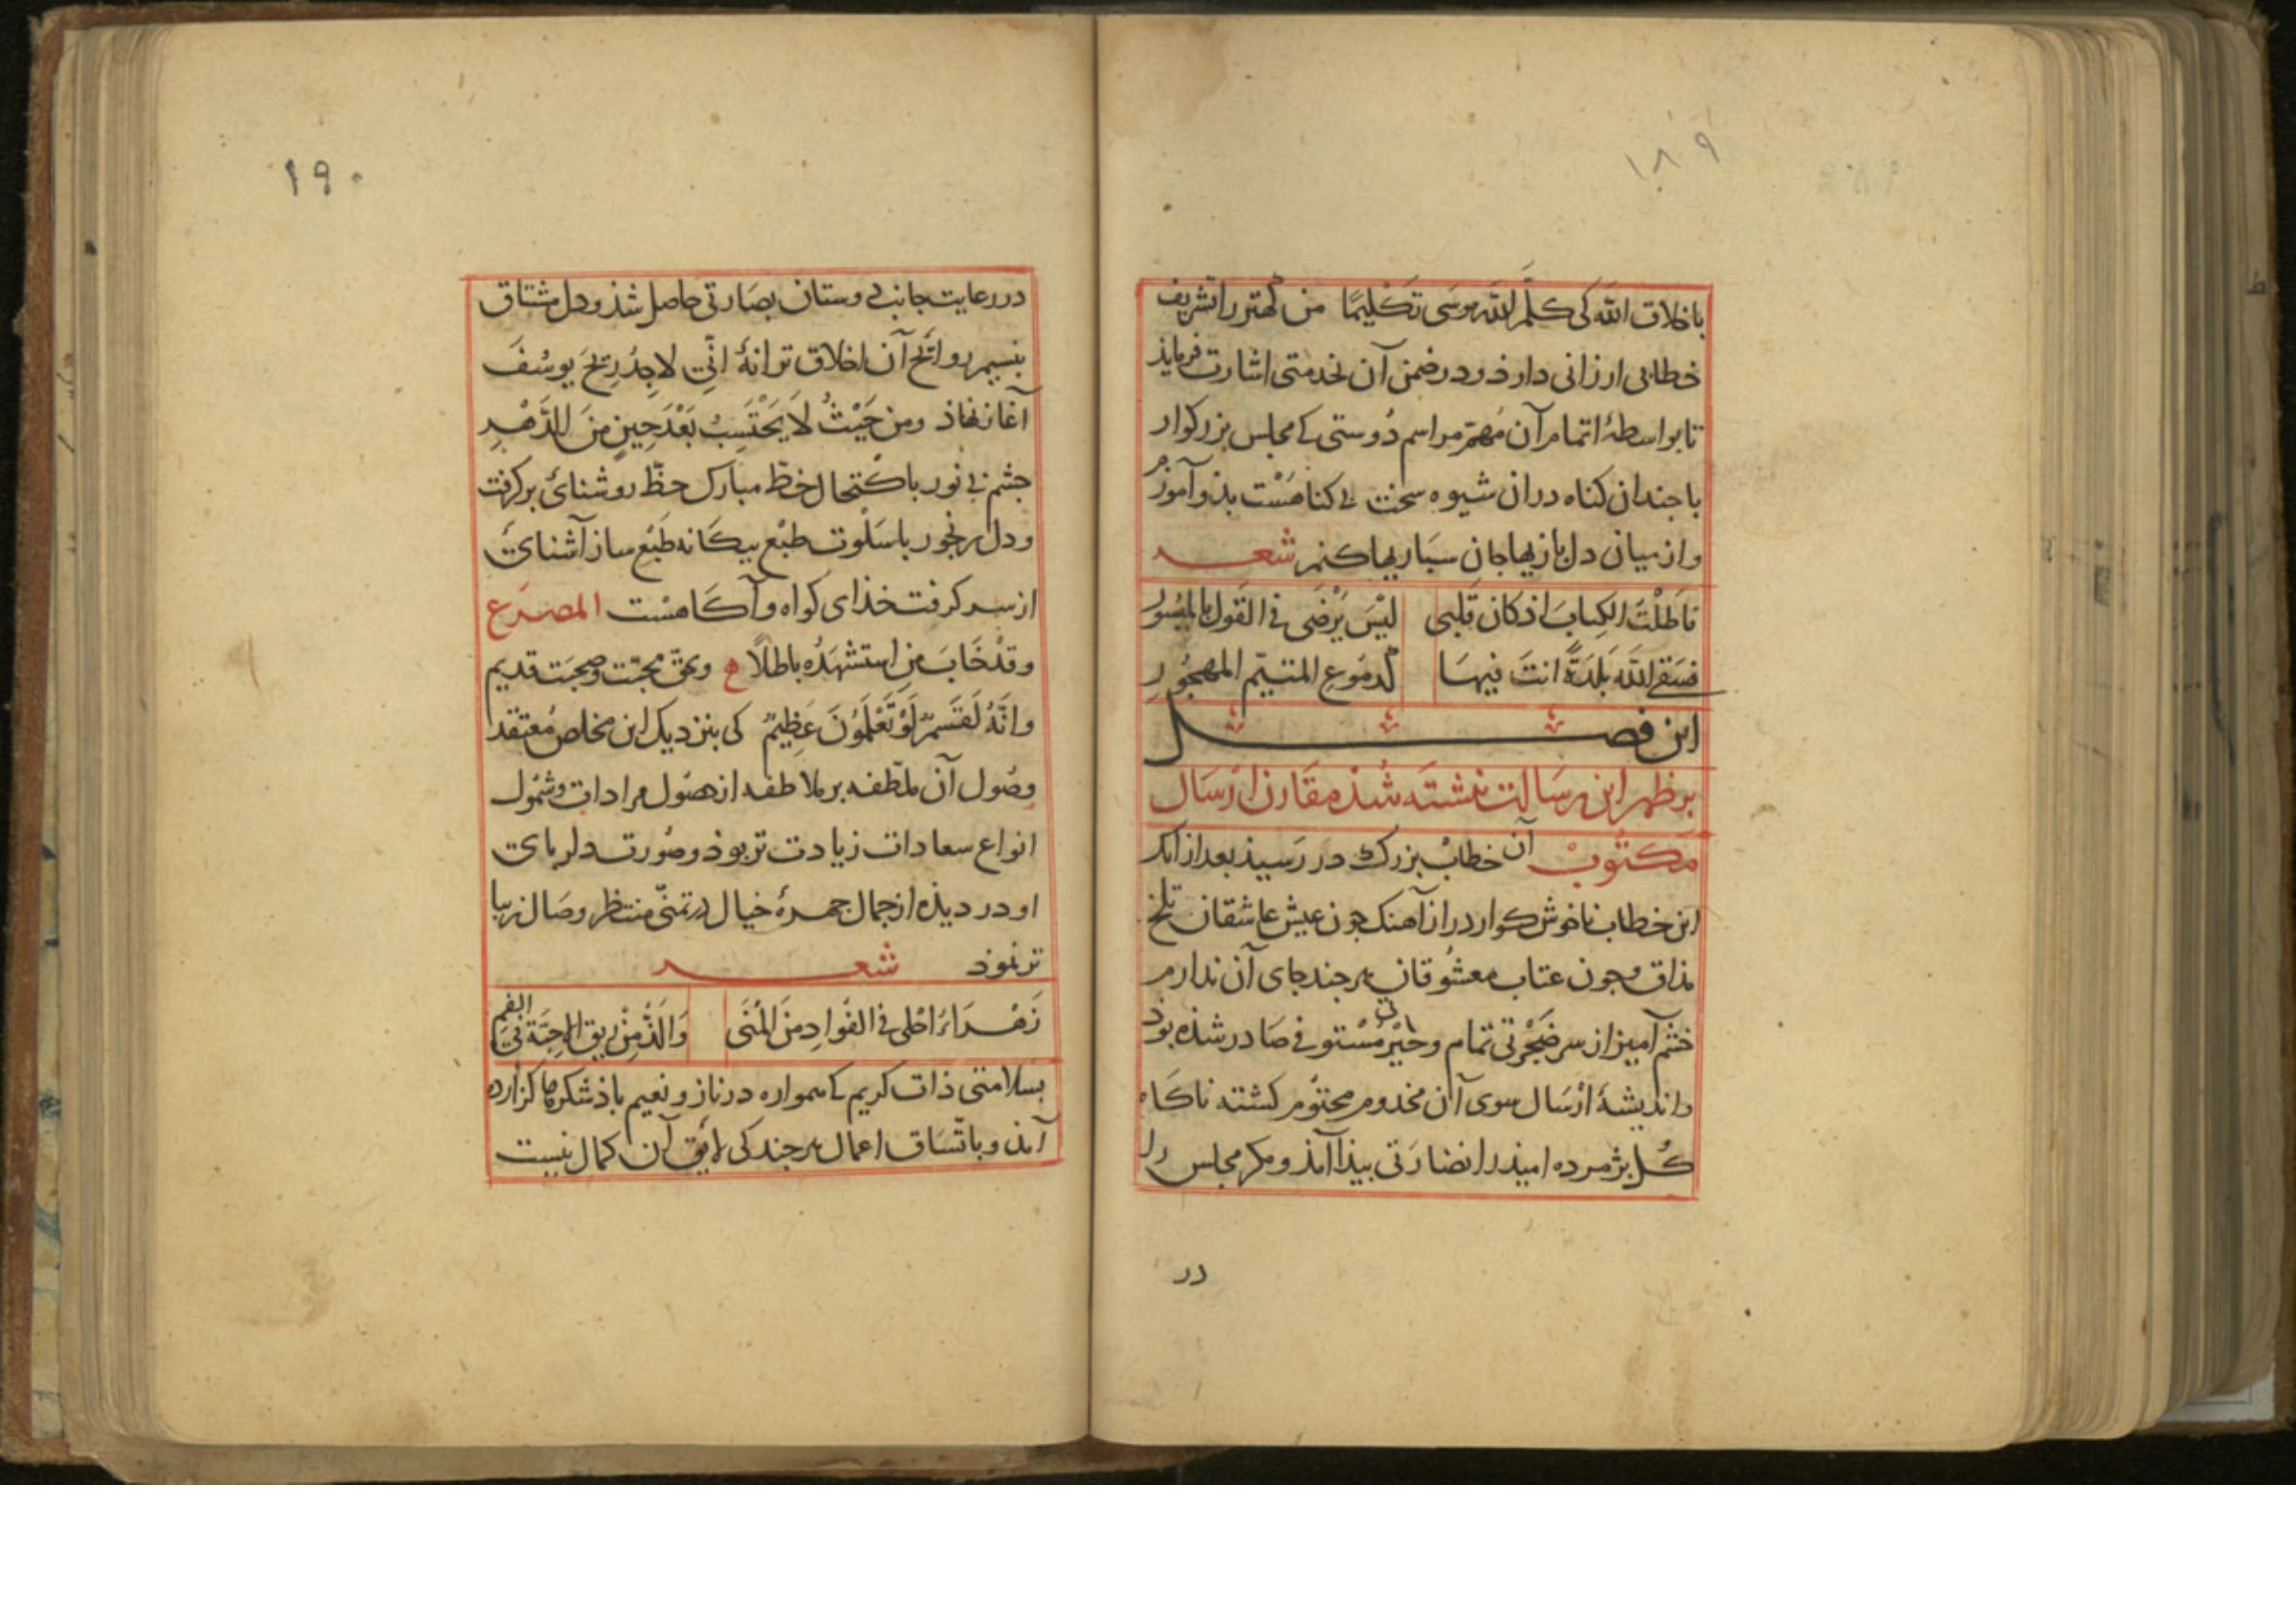 ۱۸۹
باخلاق الله کی کلّم الله موسی تکلیمًا من کهتر را تشریف
خطابی ارزانی دارذ و در ضمن آن بخدمتی اشارت فرمایذ
تا بواسطهٔ اتمام آن مُهمّ مراسم دُوستی کے مجلس بزرکوار
با جندان کناه دران شیوه سخت بی کناهست بذو آموزم
و از میان دل بازیها جان سباریها کنم شعــر
فاَطَلْتَ الکِتابَ اذ کان قلبی لَیْسَ یَرْضَی فی القول بالمیسُور
فسَقی الله بَلدَةً انتَ فیها کدمُوعِ المتیّم المهجُورِ
این فصــل
بر ظهر این رسالت نبشته شذه مقارن ارسال
مکتوبْ آن خطابْ بزرک در رَسیذ بعد از انک
این خطاب ناخوش کوار دراز آهنک جون عیش عاشقان تلخ
مذاق و جون عتاب معشوقان هر جند جای آن ندارم
خشم آمیز از سر ضُجْرتی تمام و حَیْرتی مُسْتوفی صَادر شذه بوذ
و اندیشهٔ ارْسَال سوی آن مخدوم محتوُم کشته ناکاه
کُل بژمرده امیذ را نضارَتی بیذا آمذ و مکر مجلس را
در
۱۹۰
در رعایت جانب دوستان بصَارتی حاصل شذ و دل مشتاق
بنسیم روائح آن اخلاق ترانهٔ انّی لاجِدُ رِیحَ یوسُفَ
آغاز نهاذ ومن حَیْثُ لَا یَحْتَسِبُ بَعْدَ حِینٍ منَ الدَّهْرِ
جشم بی نور باکْتحال خطّ مبارک حظّ روشنائی برکرفت
و دل رنجور باسَلْوت طبْع بیکانه طَبْع ساز آشنائی
از سر کرفت خذای کواه و آکاهست المصرَع
وقدْ خَابَ مَن استشهَدُه باطلًا ه و بحق محبّت و صحبَت قدیم
وانّهُ لَقَسَمٌ لَوْ تَعْلَمُونَ عَظِیمٌ کی بنزدیک این مخلص مُعتقد
وصُول آن ملطّفه بر ملاطفه از حصُول مرادات و شمُول
انواع سعادات زیادت تر بوذ و صُورت دلربای
او در دیذه از جمال جهرهٔ خیال در تمنّی منتظر وصَال زیبا
تر نموذ شعــر
زَهْــرَاءُ احْلی فی الفؤادِ منَ المُنَی وَاَلَذُّ مِنْ رِیق الاَحِبّةِ فی الفمِ
بسلامتی ذات کریم کے همواره در ناز و نعیم باذ شکرها کزارده
آمذ و باتّسَاق اعمال هر جند کی لایق آن کمال نیست